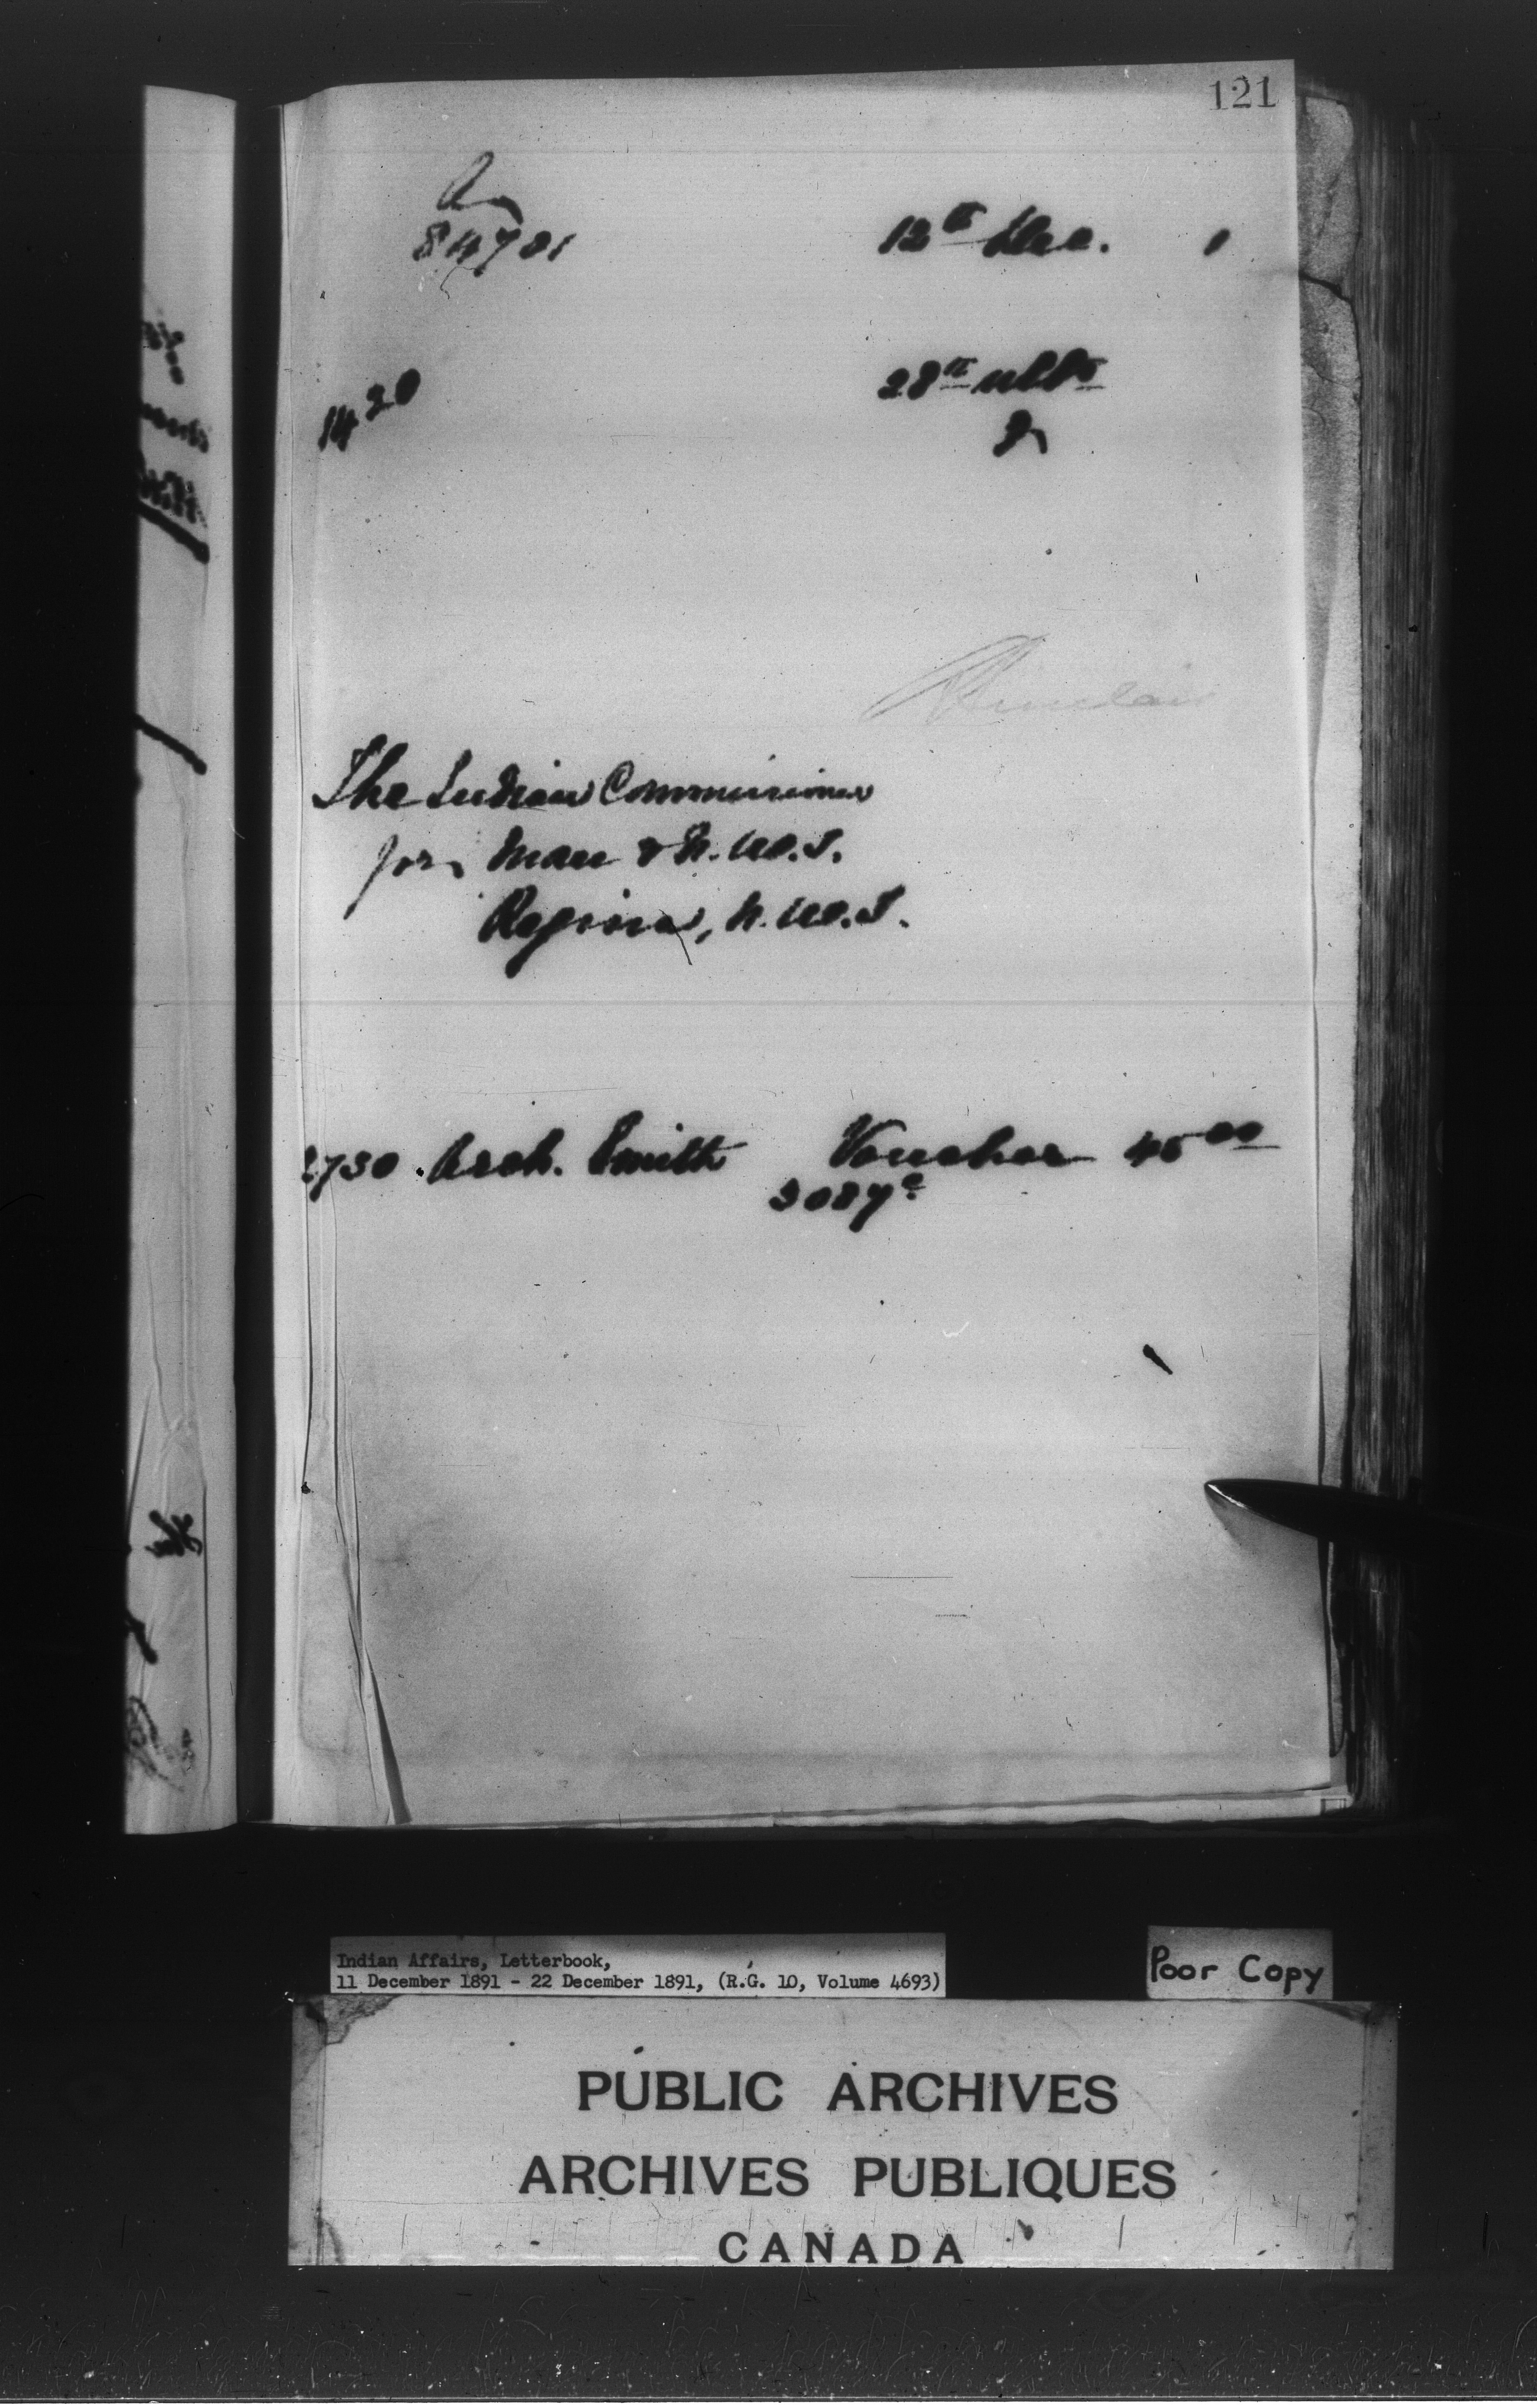 121
84701
12th Dec. 1
28th ulto
1420
Sinclair
The Indian Commissioner
for Man & N.W.T.
Regina, N.W.T.
2730 Arch. Smith Voucher 45 00
3087
Indian Affairs, Letterbook,
11 December 1891 - 22 December 1891, (R.G. 10, Volume 4693)
Poor Copy
PUBLIC ARCHIVES
ARCHIVES PUBLIQUES
CANADA